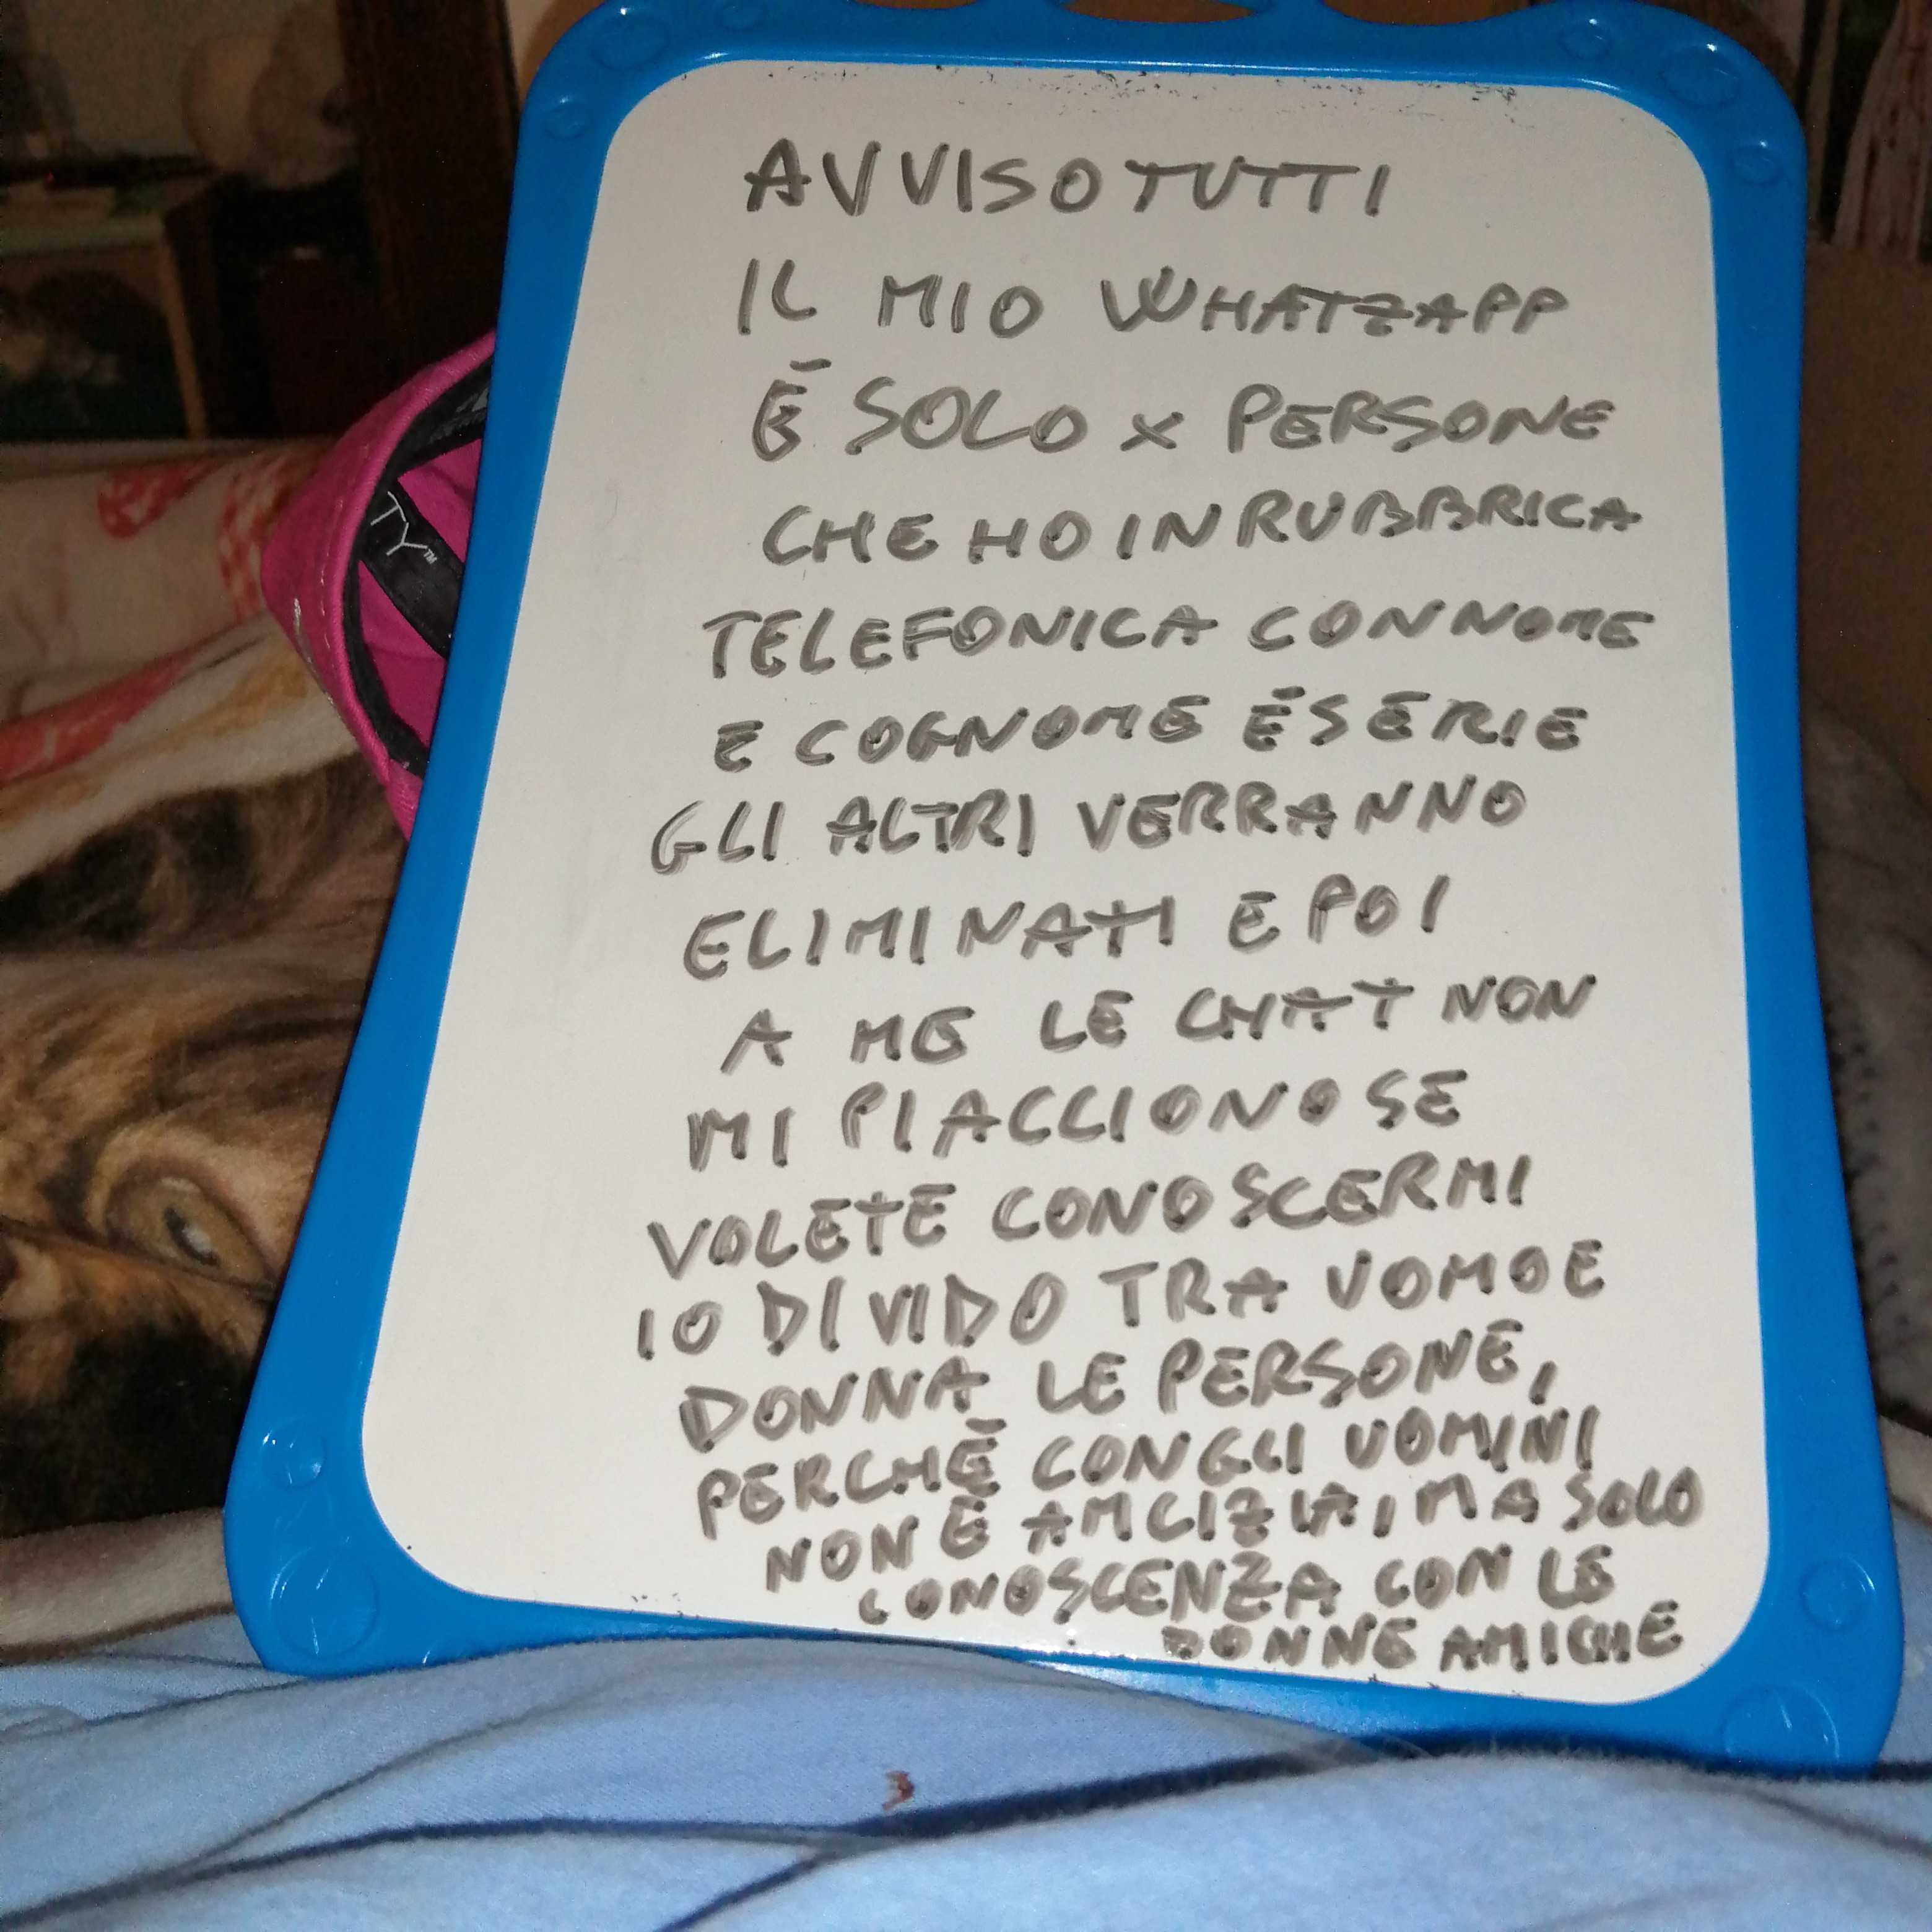 AVVISO TUTTI
IL MIO WHATZAPP
È SOLO x PERSONE
CHE HO IN RUBBRICA
TELEFONICA CON NOME
E COGNOME É SERIE
GLI ALTRI VERRANNO
ELIMINATI E POI
A ME LE CHAT NON
MI PIACCIONO SE
VOLETE CONOSCERMI
IO DIVIDO TRA UOMO E
DONNA LE PERSONE,
PERCHÈ CON GLI UOMINI
NON È AMCIZIA, MA SOLO
CONOSCENZA CON LE
DONNE AMICHE
TY™